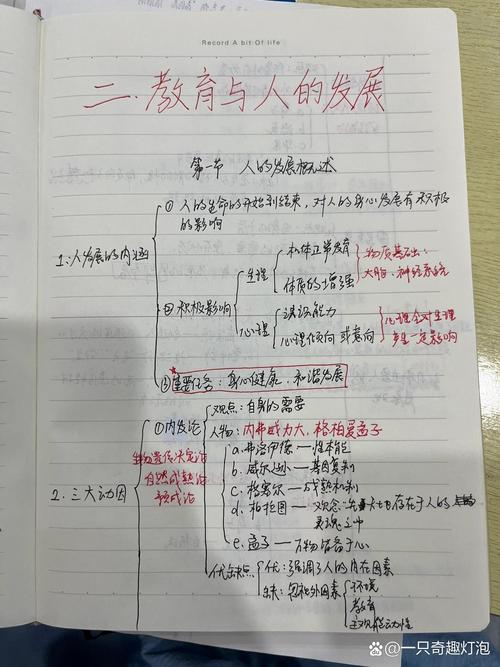 Record A bit Of life
二.教育与人的发展
第一节 人的发展概述
1.人发展的内涵
① 人的生命的开始到结束,对人的身心发展有积极
的影响
②积极影响
生理
机体正常发育
体质的增强
物质基础:
大脑、神经系统
心理
认识能力
心理倾向 或意向
心理会对生理
产生一定影响
③重要任务:身心健康、和谐发展
2.三大动因
①内发论
生物遗传决定论
自然成熟论
预成论
观点:自身的需要
人物:内弗威力大,格柏爱孟子
a.弗洛伊德—性本能
b.威尔逊—基因复制
c.格赛尔—成熟机制
d.柏拉图—观念 存在于人的
灵魂之中
e.孟子—万物皆备于心
优缺点
优:强调了人的内在因素
缺:忽视外因素
环境
教育
主观能动性
一只奇趣灯泡